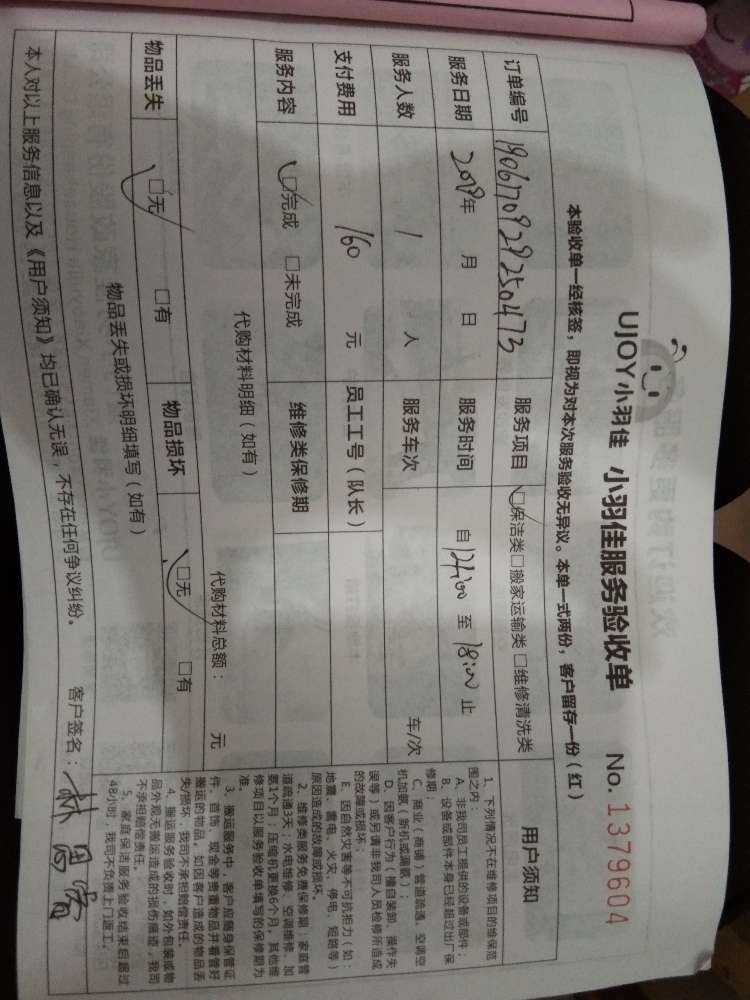 UJOY小羽佳 小羽佳服务验收单 No. 1379604
本验收单一经核签，即视为对本次服务验收无异议。本单一式两份，客户留存一份（红）
订单编号 190617092925 0473 服务项目 ☑保洁类 □搬家运输类 □维修清洗类
服务日期 2019年 月 日 服务时间 自 14:00 至 18:00 止
服务人数 1 人 服务车次 车/次
支付费用 160 元 员工工号（队长）
服务内容 ☑完成 □未完成 维修类保修期
代购材料明细（如有）
代购材料总额： 元
物品丢失 ☑无 □有 物品损坏 ☑无 □有
物品丢失或损坏明细填写（如有）
用户须知
1、下列情况不在维修项目的维保范
围之内：
A、非我司员工提供的设备或部件；
B、设备或部件本身已经超过出厂保
修期；
C、商业（商铺）管道疏通、空调空
机加氨（新机或漏氨）；
D、因客户行为（擅自装卸、操作失
误等）或另请非我司人员检修所造成
的故障或损坏；
E、因自然灾害等不可抗拒力（如：
地震、雷电、火灾、停电、短路等）
原因造成的故障或损坏。
2、维修类服务免费保修期：家庭管
道疏通3天，水电维修、空调维修、加
氨1个月，压缩机更换6个月，其他维
修项目以服务验收单填写的保修期为
准。
3、搬运服务中，客户应随身保管证
件、首饰、现金等贵重物品并看管好
搬运的物品。如因客户造成的物品丢
失/损坏，我司不承担赔偿责任。
4、搬运服务验收时，如外包装或物
品外观无搬运造成的损伤痕迹，我司
不承担赔偿责任。
5、家庭保洁服务验收结束后超过
48小时，我司不负责上门返工。
本人对以上服务信息以及《用户须知》均已确认无误，不存在任何争议纠纷。 客户签名：林